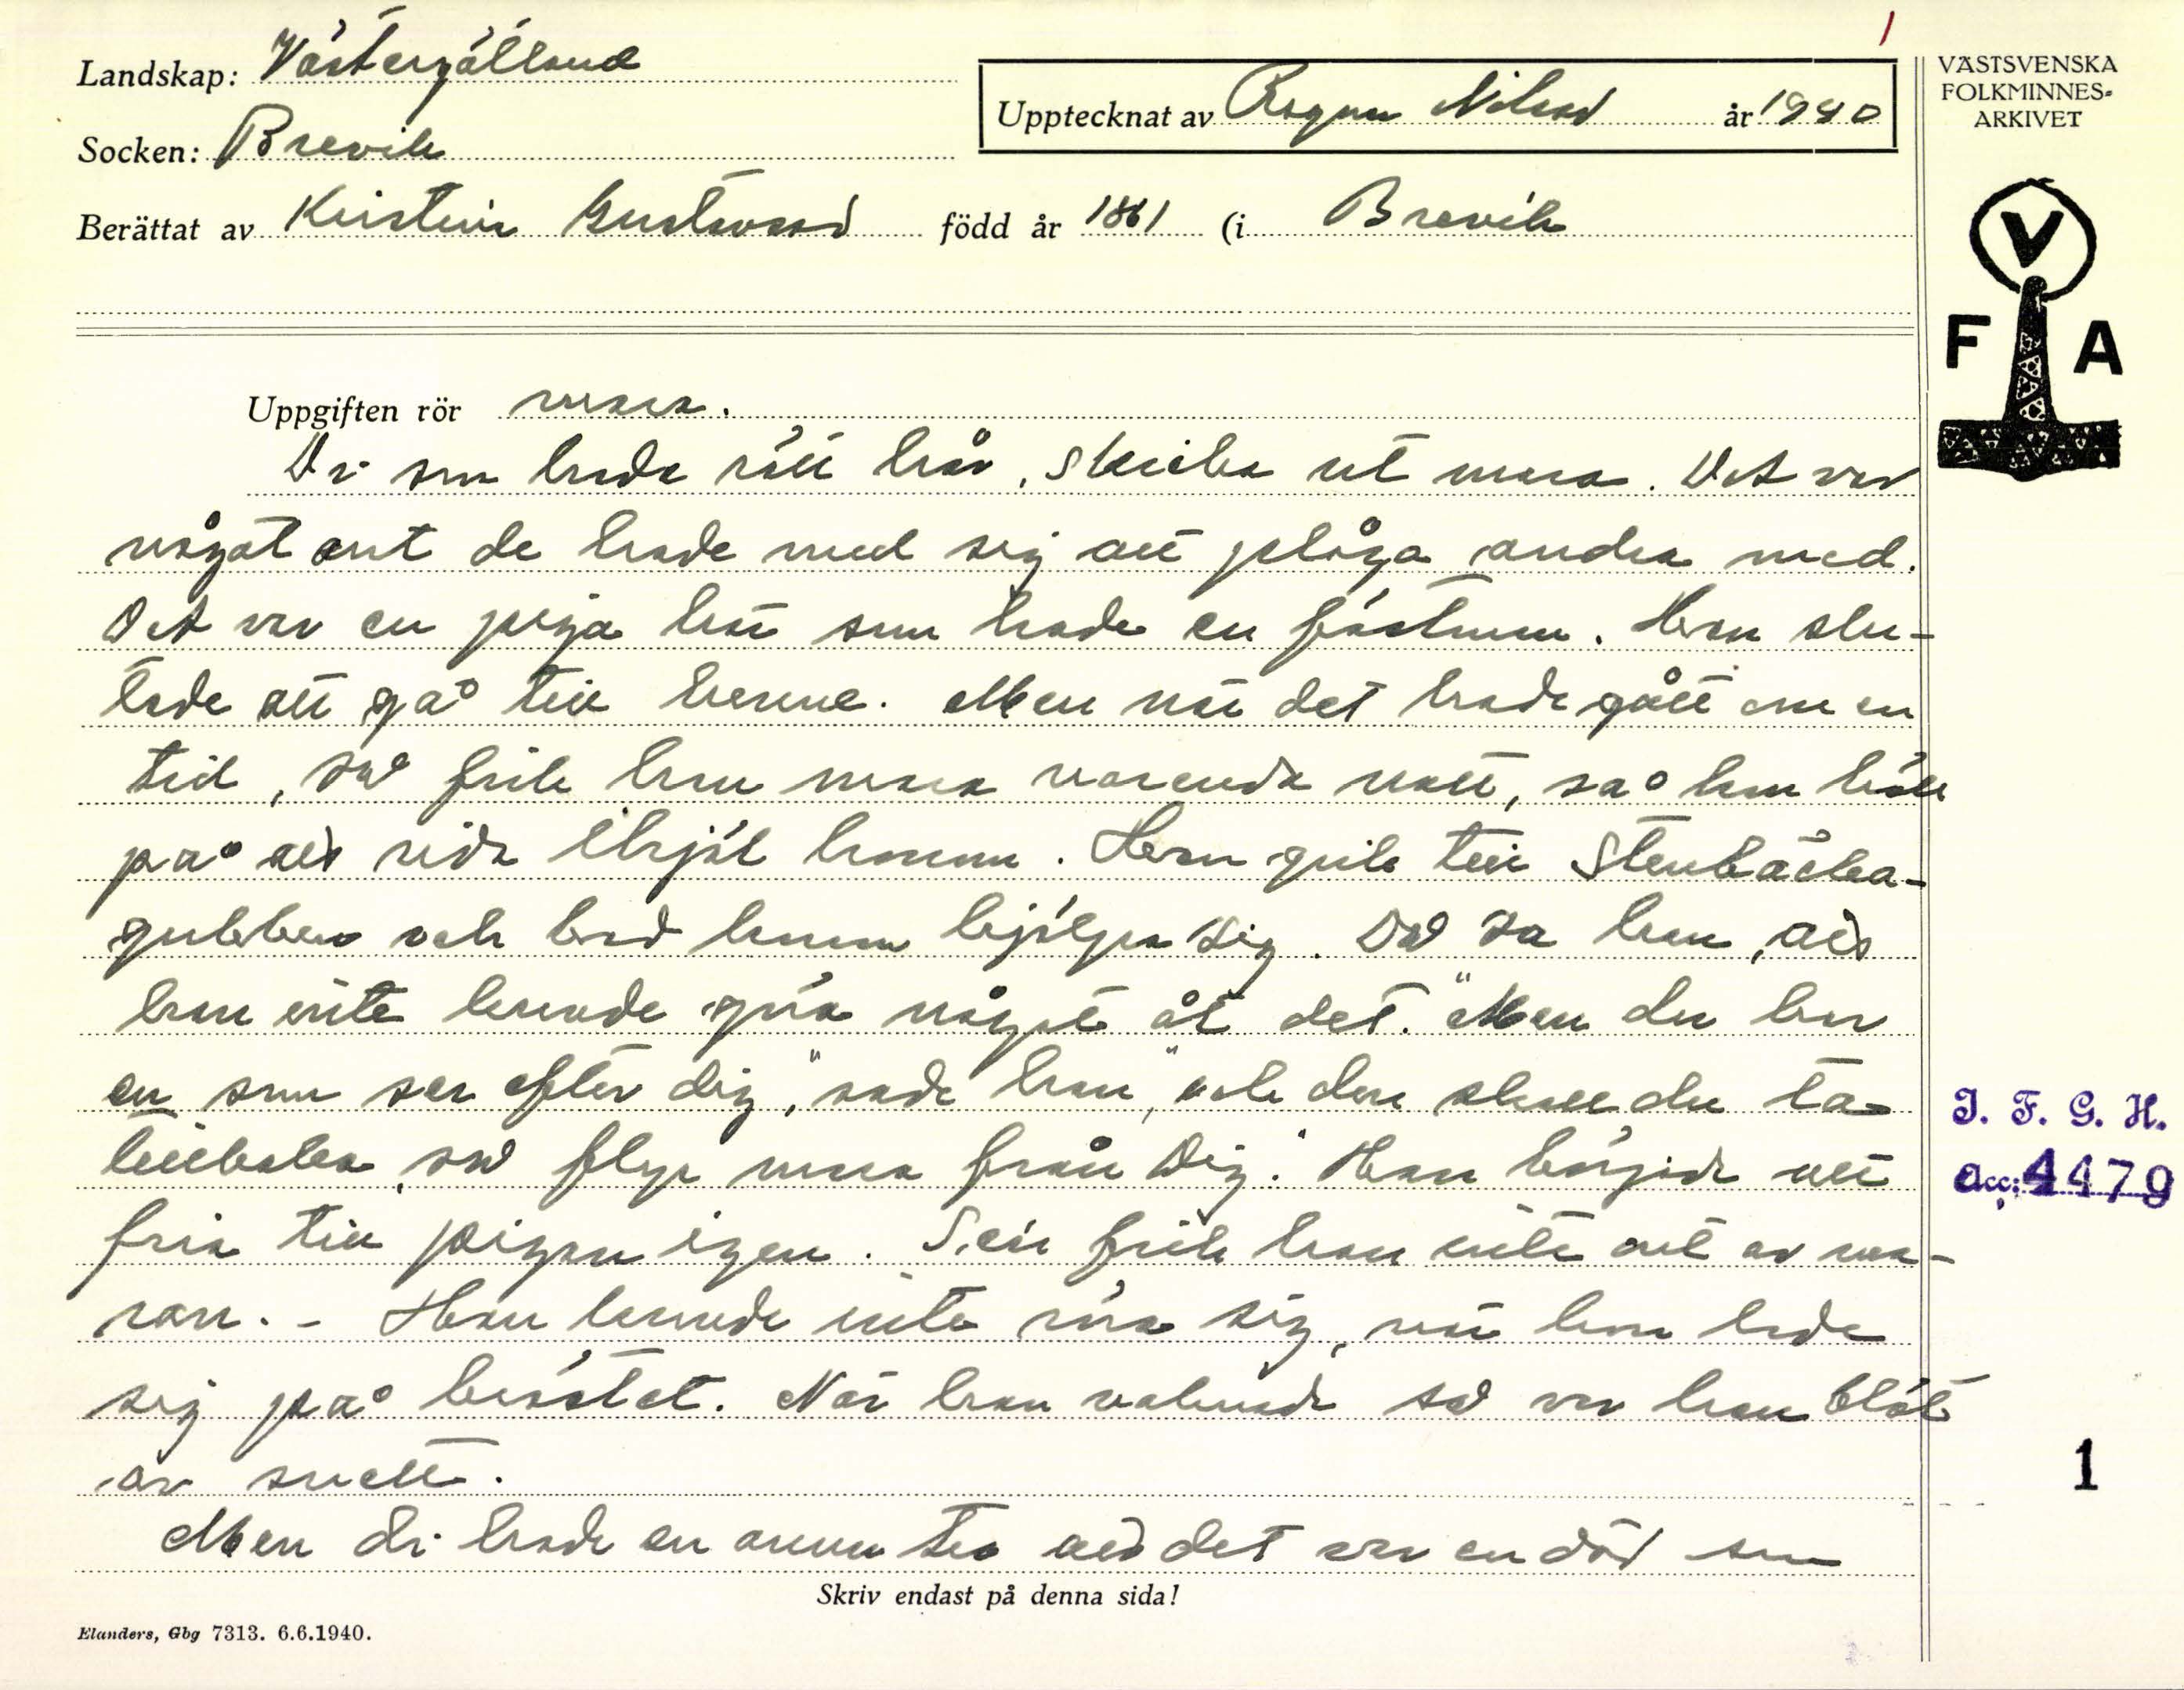 Landskap: Västergötland
Socken: Brevik
Upptecknat av Ragnar Nilsson år 1940
Berättat av Kristin Gustavsson född år 1861 (i Brevik
VÄSTSVENSKA
FOLKMINNES-
ARKIVET
V
F A
Uppgiften rör mara.
Di som hade rött hår, skicka ut mara. Det var
något ont de hade med sig att plåga andra med.
Det var en piga här som hade en fästman. Han slu-
tade att gå till henne. Men när det hade gått om en
tid, så fick han mara varenda natt, så hon höll
på att rida ihjäl honom. Han gick till Stenbäcka-
gubben och bad honom hjälpa sig. Då sa han, att
han inte kunde göra något åt det. "Men du har
en som ser efter dig," sade han, "och den skall du ta
tillbaka, så flyr mara från dig." Han började att
fria till pigan igen. Sen fick han inte ont av ma-
ran. - Han kunde inte röra sig, när hon lade
sig på bröstet. När han vaknade så var han blöt
av svett.
Men di hade en annan tro att det var en död som
Skriv endast på denna sida!
Elanders, Gbg 7313. 6.6.1940.
I. F. G. H.
Acc: 4479
1